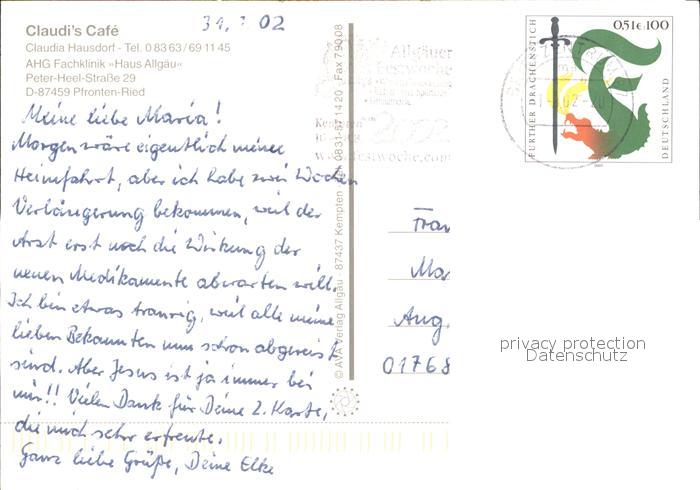 31. 7 02
Claudi's Café
Claudia Hausdorf - Tel. 0 83 63 / 69 11 45
AHG Fachklinik »Haus Allgäu«
Peter-Heel-Straße 29
D-87459 Pfronten-Ried
Meine liebe Maria!
Morgen wäre eigentlich meine
Heimfahrt, aber ich habe zwei Wochen
Verlängerung bekommen, weil der
Arzt erst noch die Wirkung der
neuen Medikamente abwarten will.
Ich bin etwas traurig, weil alle meine
lieben Bekannten nun schon abgereist
sind. Aber Jesus ist ja immer bei
mir!! Vielen Dank für Deine 2. Karte,
die mich sehr erfreute.
Ganz liebe Grüße, Deine Elke
© AVA Verlag Allgäu · 87437 Kempten 0831-5711420 · Fax 79008
Allgäuer
Festwoche
Kempten
2002
www.festwoche.com
FURTHER DRACHENSTICH
0,51€ 100
DEUTSCHLAND
Frau
Ma
Aug.
01768
privacy protection
Datenschutz